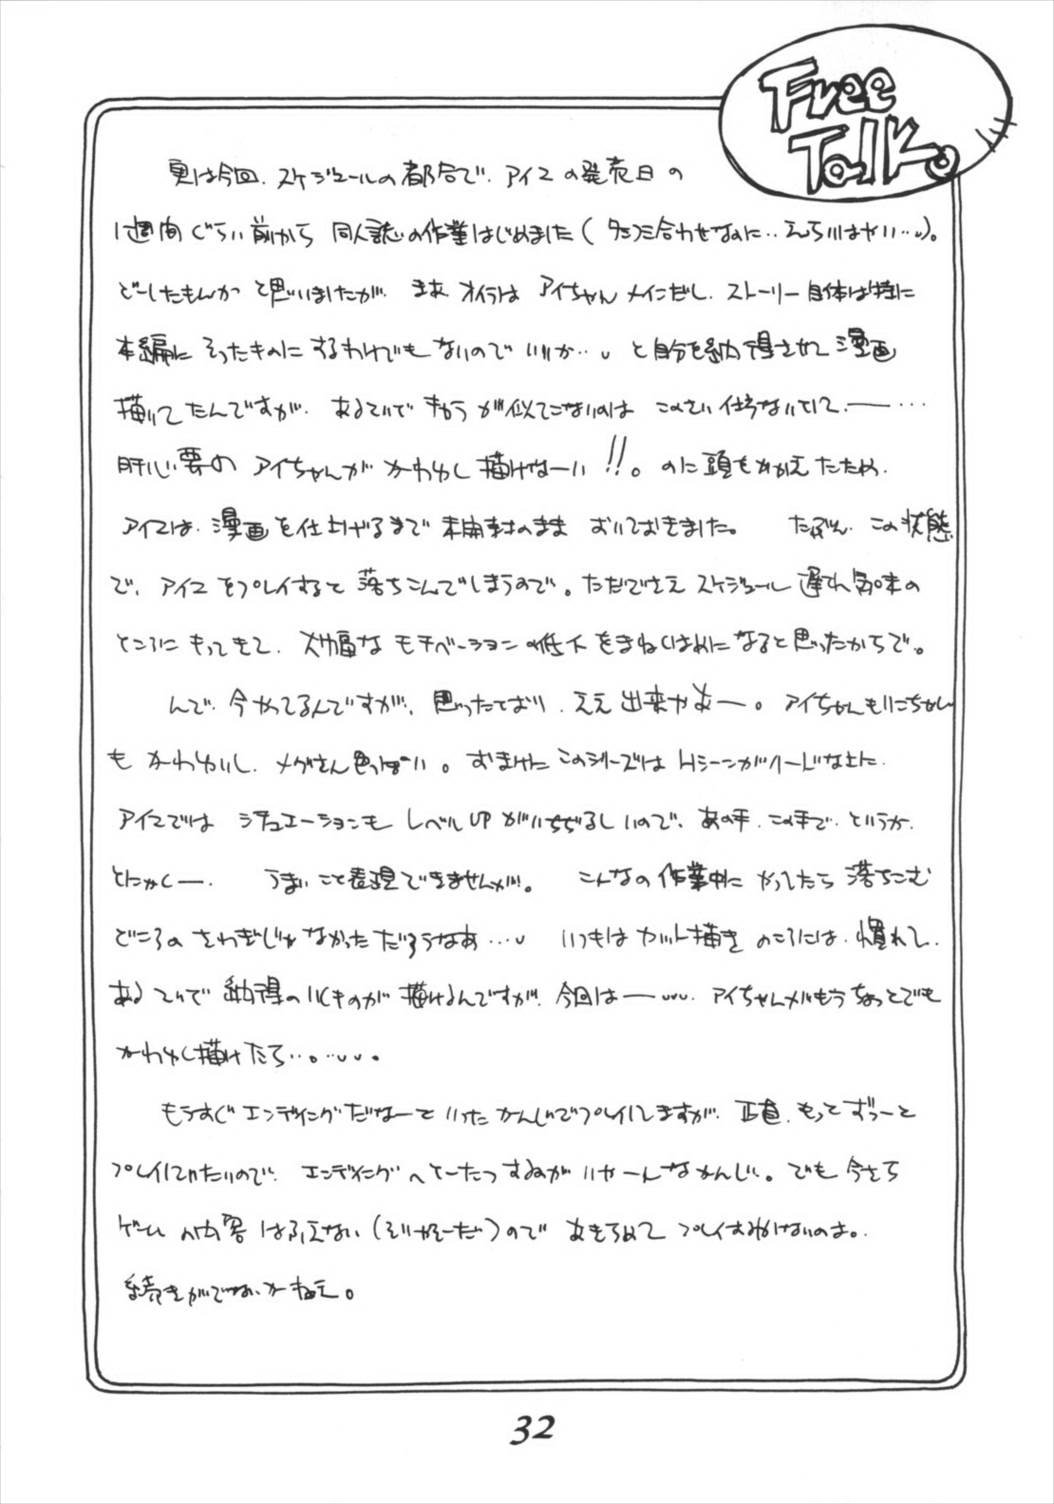 Free
Talk。
実は今回、スケジュールの都合で、アイマの発売日の
1週間ぐらい前から 同人誌の作業はじめました(
どーしたもんか と思いましたが、まあ オイラは アイちゃん メインだし、ストーリー自体は特に
本編に そったものに するわけでも ないので いいか‥、と自分を納得させて漫画
描いて たんですが、あるていど きゅうが似てこないのは このさい 仕方ないとして、――‥‥
肝心要の アイちゃんが かわゆく描けなーい!!。のに頭もかかえたため、
アイマは、漫画を仕上げるまで 未開封のまま おいておきました。 たぶん、この状態
で、アイマをプレイすると 落ちこんでしまうので。ただでさえ スケジュール 遅れ気味の
ところに もってきて、大幅な モチベーションの低下 をまねくはめに なると思ったからで。
んで、今やってるんですが、思ったとおり、ええ 出来やあー。アイちゃんも
も かわゆいし、メグさん色っぽい。おまけに このシリーズは Hシーンがハードな上に、
アイマでは シチュエーションも レベルUPがいちぢるしいので、あの手、この手で、というか、
とにかくー、 うまいこと表現できませんが。 こんなの 作業中に やってたら 落ちこむ
どころの さわぎじゃ なかった だろうなあ‥‥、 いつもは カット描き のころには、慣れて、
あるていど 納得のいくものが 描けるんですが、今回はー‥‥ アイちゃんがもうちょっとでも
かわゆく描けたら‥。‥。
もうすぐ エンディングだなーと いった かんじでプレイしてますが、正直、もっと ずっーと
プレイしてたいので、エンディングへ とーたつ するのが いやーんな かんじ。でも 今さら
ゲーム 内容は ふえない(そりゃそーだ)ので あきらめて プレイ
続きがでないかねえ。
32